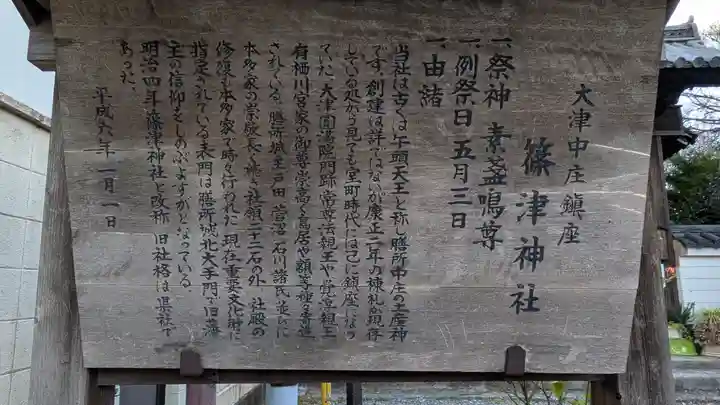 大津中庄鎮座
篠津神社
一、祭神 素盞嗚尊
一、例祭日 五月三日
一、由緒
当社は古くは牛頭天王と称し膳所中庄の土産神
です。創建は詳ではないが康正二年の棟札が現存
している処から見ても室町時代には已に鎮座になっ
ていた。大津圓満院門跡常尊法親王や覚尊親王
有栖川宮家の御尊崇高く鳥居や額等種々寄進
されている。膳所城主戸田 菅沼 石川諸氏並びに
本多家の崇敬長く続き社領二十二石の外、社殿の
修復は本多家で時々行われた。現在重要文化財に
指定されている表門は膳所城北大手門で旧藩
主の信仰をしのぶよすがとなっている。
明治四年篠津神社と改称 旧社格は県社で
あった。
平成六年一月一日